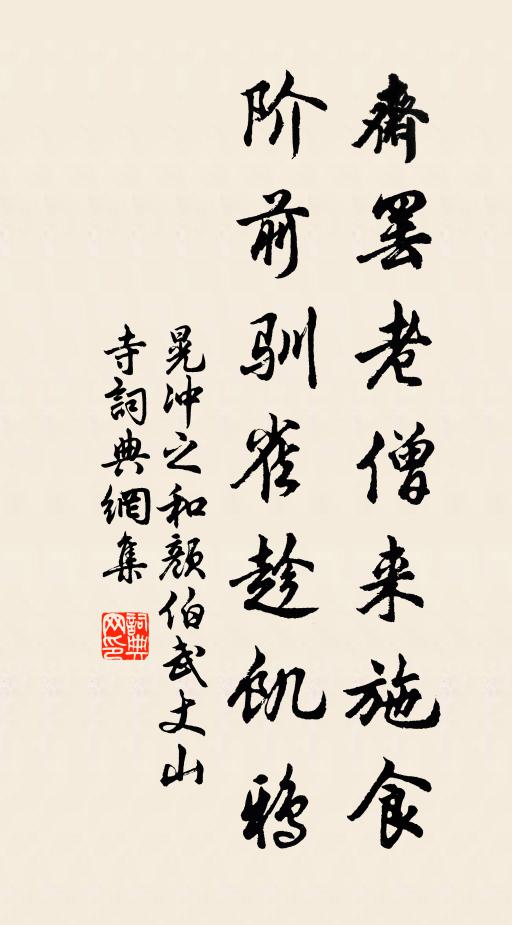 齋罢老僧来施食
阶前驯雀趁饥鸦
晃冲之和颜伯武丈山
寺詞典網集
詞典网印